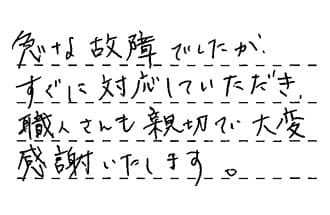 急な故障でしたが、
すぐに対応していただき、
職人さんも親切で大変
感謝いたします。